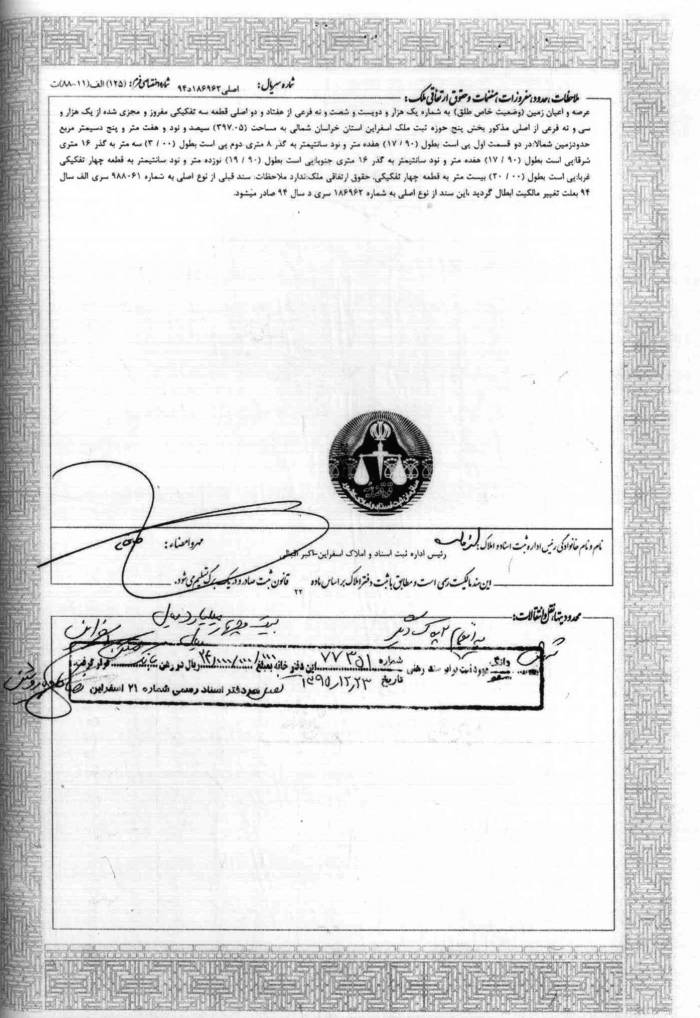 شماره سریال: اصلی ۱۸۶۹۶۲د۹۴ شماره اختصاصی فرم: (۱۲۵) الف(۱۱-۸۸)ث
ملاحظات، حدود، مفروزات، منضمات و حقوق ارتفاقی ملک:
عرصه و اعیان زمین (وضعیت خاص طلق) به شماره یک هزار و دویست و شصت و نه فرعی از هفتاد و دو اصلی قطعه سه تفکیکی مفروز و مجزی شده از یک هزار و
سی و نه فرعی از اصلی مذکور بخش پنج حوزه ثبت ملک اسفراین استان خراسان شمالی به مساحت (۳۹۷.۰۵) سیصد و نود و هفت متر و پنج دسیمتر مربع
حدودزمین شمالا:در دو قسمت اول پی است بطول (۱۷ / ۹۰) هفده متر و نود سانتیمتر به گذر ۸ متری دوم پی است بطول (۳ / ۰۰) سه متر به گذر ۱۶ متری
شرقا:پی است بطول (۱۷ / ۹۰) هفده متر و نود سانتیمتر به گذر ۱۶ متری جنوبا:پی است بطول (۱۹ / ۹۰) نوزده متر و نود سانتیمتر به قطعه چهار تفکیکی
غربا:پی است بطول (۲۰ / ۰۰) بیست متر به قطعه چهار تفکیکی. حقوق ارتفاقی ملک:ندارد ملاحظات: سند قبلی از نوع اصلی به شماره ۹۸۸۰۶۱ سری الف سال
۹۴ بعلت تغییر مالکیت ابطال گردید ،این سند از نوع اصلی به شماره ۱۸۶۹۶۲ سری د سال ۹۴ صادر میشود.
نام و نام خانوادگی رئیس اداره ثبت اسناد و املاک: مهر و امضاء:
رئیس اداره ثبت اسناد و املاک اسفراین-اکبر
این سند مالکیت رسمی است و مطابق با ثبت دفتر املاک بر اساس ماده ۲۲ قانون ثبت صادر و در یک برگ تنظیم می شود.
محدودیتها، نقل و انتقالات:
بیست و چهار میلیارد ریال
شش دانگ مورد ثبت برابر سند رهنی شماره ۷۷۳۵۱ این دفتر خانه بمبلغ ۲۴/۰۰۰/۰۰۰/۰۰۰ ریال در رهن بانک قرار گرفت
تاریخ ۱۳۹۵/۱۲/۲۳ دفتر اسناد رسمی شماره ۲۱ اسفراین